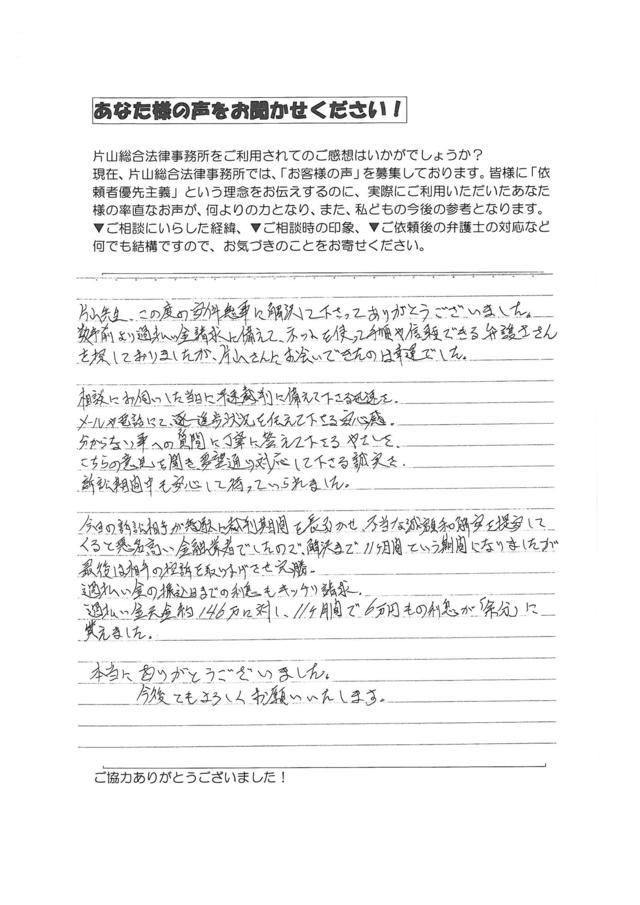 あなた様の声をお聞かせください！
片山総合法律事務所をご利用されてのご感想はいかがでしょうか？
現在、片山総合法律事務所では、「お客様の声」を募集しております。皆様に「依
頼者優先主義」という理念をお伝えするのに、実際にご利用いただいたあなた
様の率直なお声が、何よりの力となり、また、私どもの今後の参考となります。
▼ご相談にいらした経緯、▼ご相談時の印象、▼ご依頼後の弁護士の対応など
何でも結構ですので、お気づきのことをお寄せください。
片山先生、この度の案件無事に解決して下さってありがとうございました。
数年前より過払い金請求に備えて、ネットを使って手順や信頼できる弁護士さん
を探しておりましたが、片山さんにお会いできたのは幸運でした。
相談にお伺いした当日に手続裁判に備えて下さる迅速さ。
メールや電話にて、逐一進歩状況を伝えて下さる安心感。
分からない事への質問に丁寧に答えて下さるやさしさ。
こちらの意見を聞き、希望通り対応して下さる誠実さ。
訴訟期間中も安心して待っていられました。
今回の訴訟相手が無駄に裁判期間を長引かせ、不当な減額和解案を提案して
くると悪名高い金融業者でしたので、解決まで11ヶ月間という期間になりましたが
最後は相手の控訴を取り下げさせ完勝。
過払い金の振込日までの利息もキッチリ請求。
過払い金元金約146万に対し、11ヶ月間で6万円もの利息が「余分」に
貰えました。
本当にありがとうございました。
今後ともよろしくお願いいたします。
ご協力ありがとうございました！